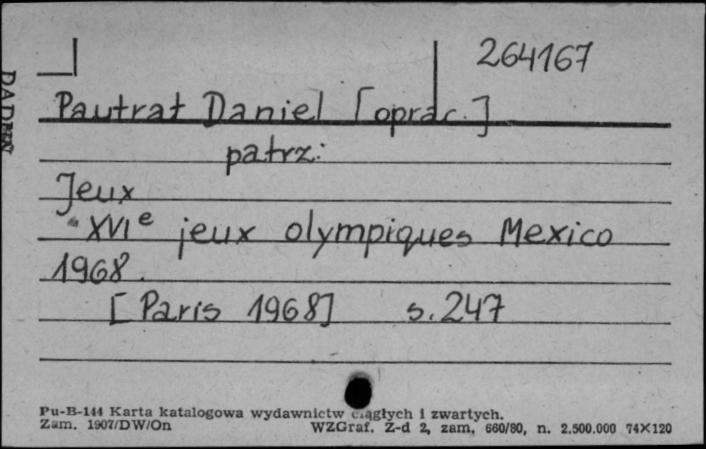 264167
Pautrat Daniel [oprac.]
patrz:
Jeux
XVIe jeux olympiques Mexico
1968.
[Paris 1968] s. 247
Pu-B-144 Karta katalogowa wydawnictw ciągłych i zwartych.
Zam. 1907/DW/On WZGraf. Z-d 2, zam. 660/80, n. 2.500.000 74X120